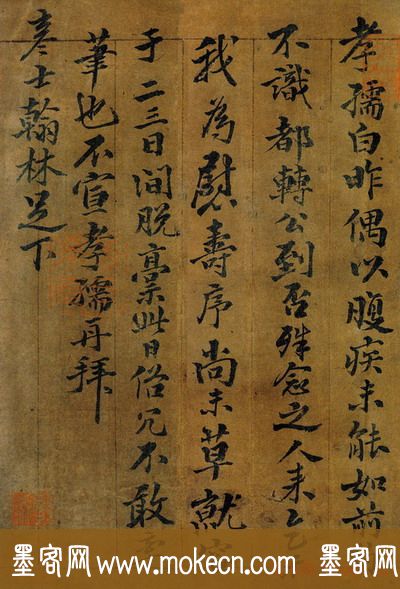 孝孺白昨偶以腹疾未能如前
不識都轉公到否殊念之人来
我為慰壽序尚未草就
于二三日間脱藁此日俗冗不敢
筆也不宣孝孺再拜
彦士翰林足下
墨客网 www.mokecn.com 墨客网